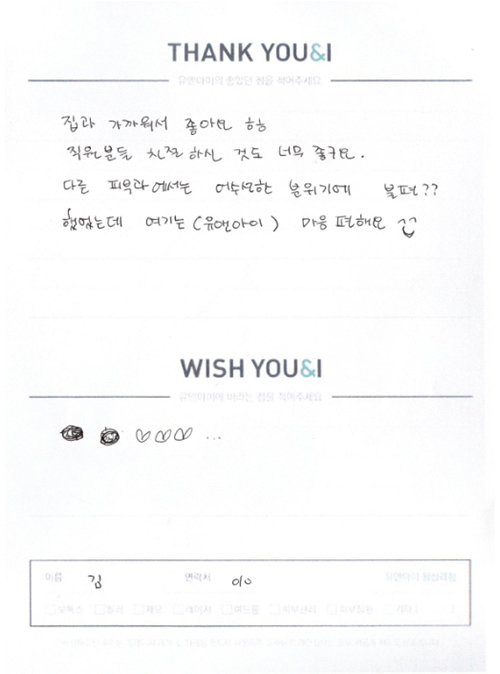 THANK YOU&I
유앤아이의 좋았던 점을 적어주세요
집과 가까워서 좋아요 ㅎㅎ
직원분들 친절하신 것도 너무 좋구요.
다른 피부과에서는 어수선한 분위기에 불편??
했었는데 여기는 (유앤아이) 마음 편해요 ^^
WISH YOU&I
유앤아이에 바라는 점을 적어주세요
♡♡♡ ...
이름 김 연락처 010
보톡스 필러 제모 레이저